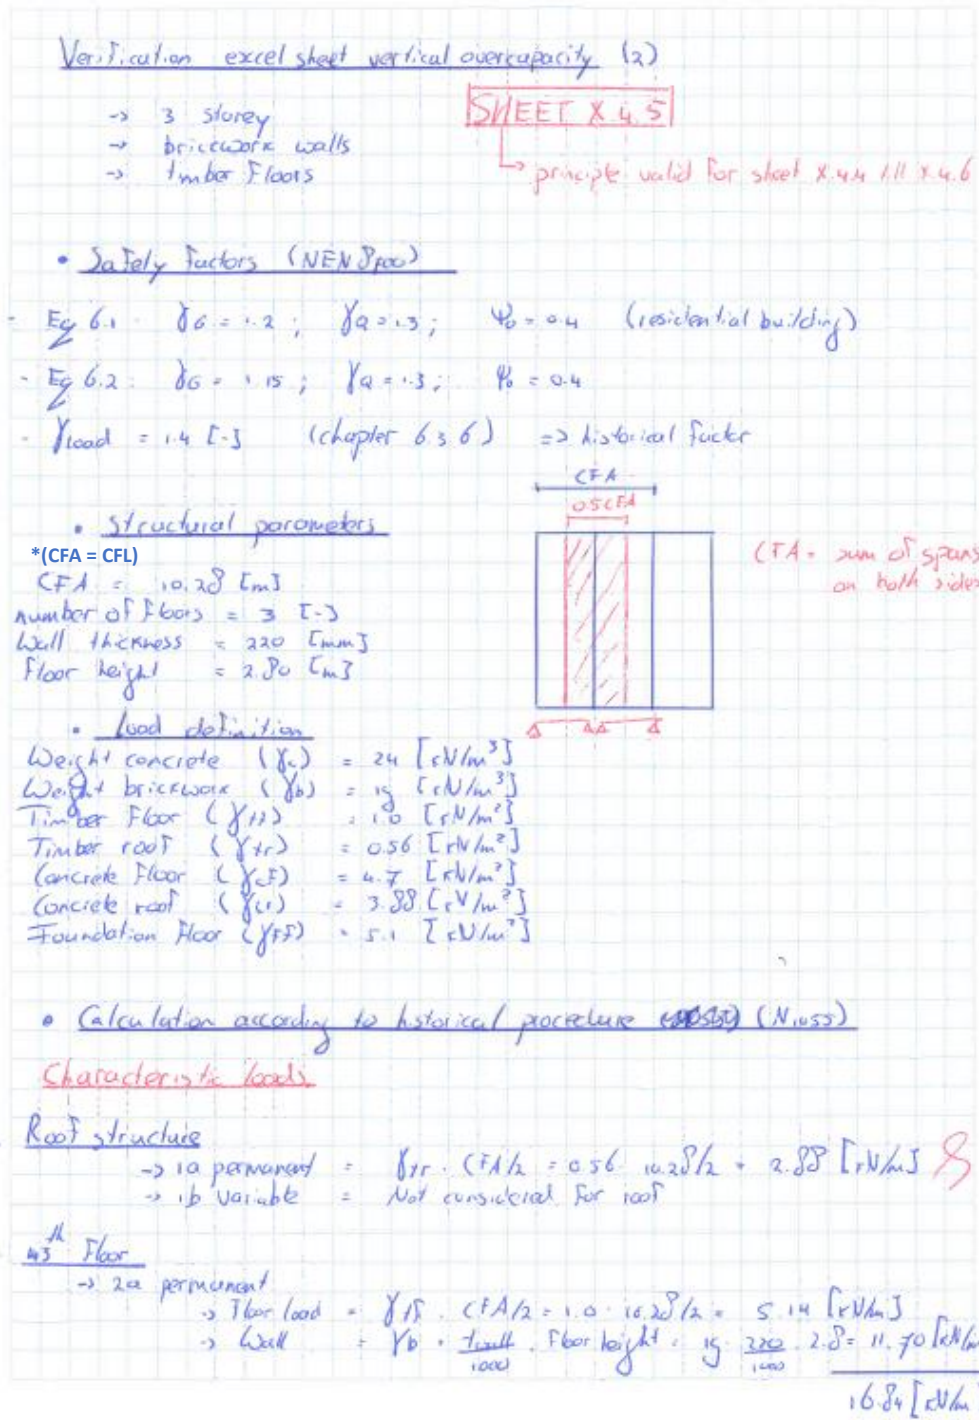 Verification excel sheet vertical overcapacity (2)
-> 3 storey
-> brickwork walls
-> timber Floors
SHEET X.4.5
principle valid for sheet X.4.4 till X.4.6
• Safety factors (NEN 8700)
- Eq 6.1 γG = 1.2 ; γQ = 1.3 ; Ψ0 = 0.4 (residential building)
- Eq 6.2 : γG = 1.15 ; γQ = 1.3 ; Ψ0 = 0.4
- γload = 1.4 [-] (chapter 6.3.6) => historical factor
CFA
0.5 CFA
• Structural parameters
*(CFA = CFL)
CFA = 10.28 [m]
number of floors = 3 [-]
Wall thickness = 220 [mm]
Floor height = 2.80 [m]
CFA = sum of spans
on both sides
• Load definition
Weight concrete (γc) = 24 [kN/m³]
Weight brickwork (γb) = 19 [kN/m³]
Timber Floor (γtf) = 1.0 [kN/m²]
Timber roof (γtr) = 0.56 [kN/m²]
Concrete Floor (γcf) = 4.7 [kN/m²]
Concrete roof (γcr) = 3.88 [kN/m²]
Foundation floor (γff) = 5.1 [kN/m²]
• Calculation according to historical procedure (N1055)
Characteristic loads
Roof structure
-> 1a permanent = γtr · CFA/2 = 0.56 · 10.28/2 = 2.88 [kN/m]
-> 1b Variable = Not considered for roof
3th Floor
-> 2a permanent
-> Floor load = γtf · CFA/2 = 1.0 · 10.28/2 = 5.14 [kN/m]
-> Wall = γb · twall/1000 · Floor height = 19 · 220/1000 · 2.8 = 11.70 [kN/m
16.84 [kN/m